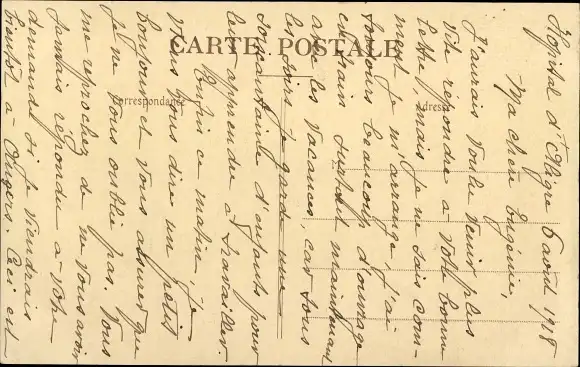 CARTE POSTALE
Correspondance
Adresse
Hôpital d'Aligre 6 août 1918
Ma chère Eugénie,
J'aurais voulu venir plus
vite répondre à votre bonne
lettre, mais je ne sais com-
ment je m'arrange, j'ai
toujours beaucoup d'ouvrage
en train surtout maintenant
avec les vacances, car tous
les soirs je garde une
soixantaine d'enfants pour
leur apprendre à travailler.
Enfin ce matin, je
viens vous dire un petit
bonjour et vous assurer que
je ne vous oublie pas. Vous
me reprochez de ne vous avoir
jamais répondu à votre
demande si je viendrais
bientôt à Angers. Ceci est